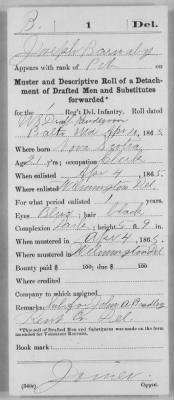 B. 1 Del.
Joseph Barnaby
Appears with rank of Pvt
Muster and Descriptive Roll of a Detach-
ment of Drafted Men and Substitutes
forwarded*
for the 1 Reg't Del. Infantry, Roll dated
Draft Rendezvous
Balto Md Apr 20, 1865.
Where born Nova Scotia
Age 21 y'rs; occupation Clerk
When enlisted Apr 4, 1865.
Where enlisted Wilmington Del.
For what period enlisted 1 years.
Eyes Blue; hair black
Complexion Dark; height 5 ft. 9 in.
When mustered in Apr 4, 1865.
Where mustered in Wilmington Del
Bounty paid $ 100; due $ 100
Where credited
Company to which assigned
Remarks: Sub. for John A. Bradley
Kent Co. Del.
*This roll of Drafted Men and Substitutes was made on the form
intended for Volunteer Recruits.
Book mark:
Joiner
(340i) Copyist.